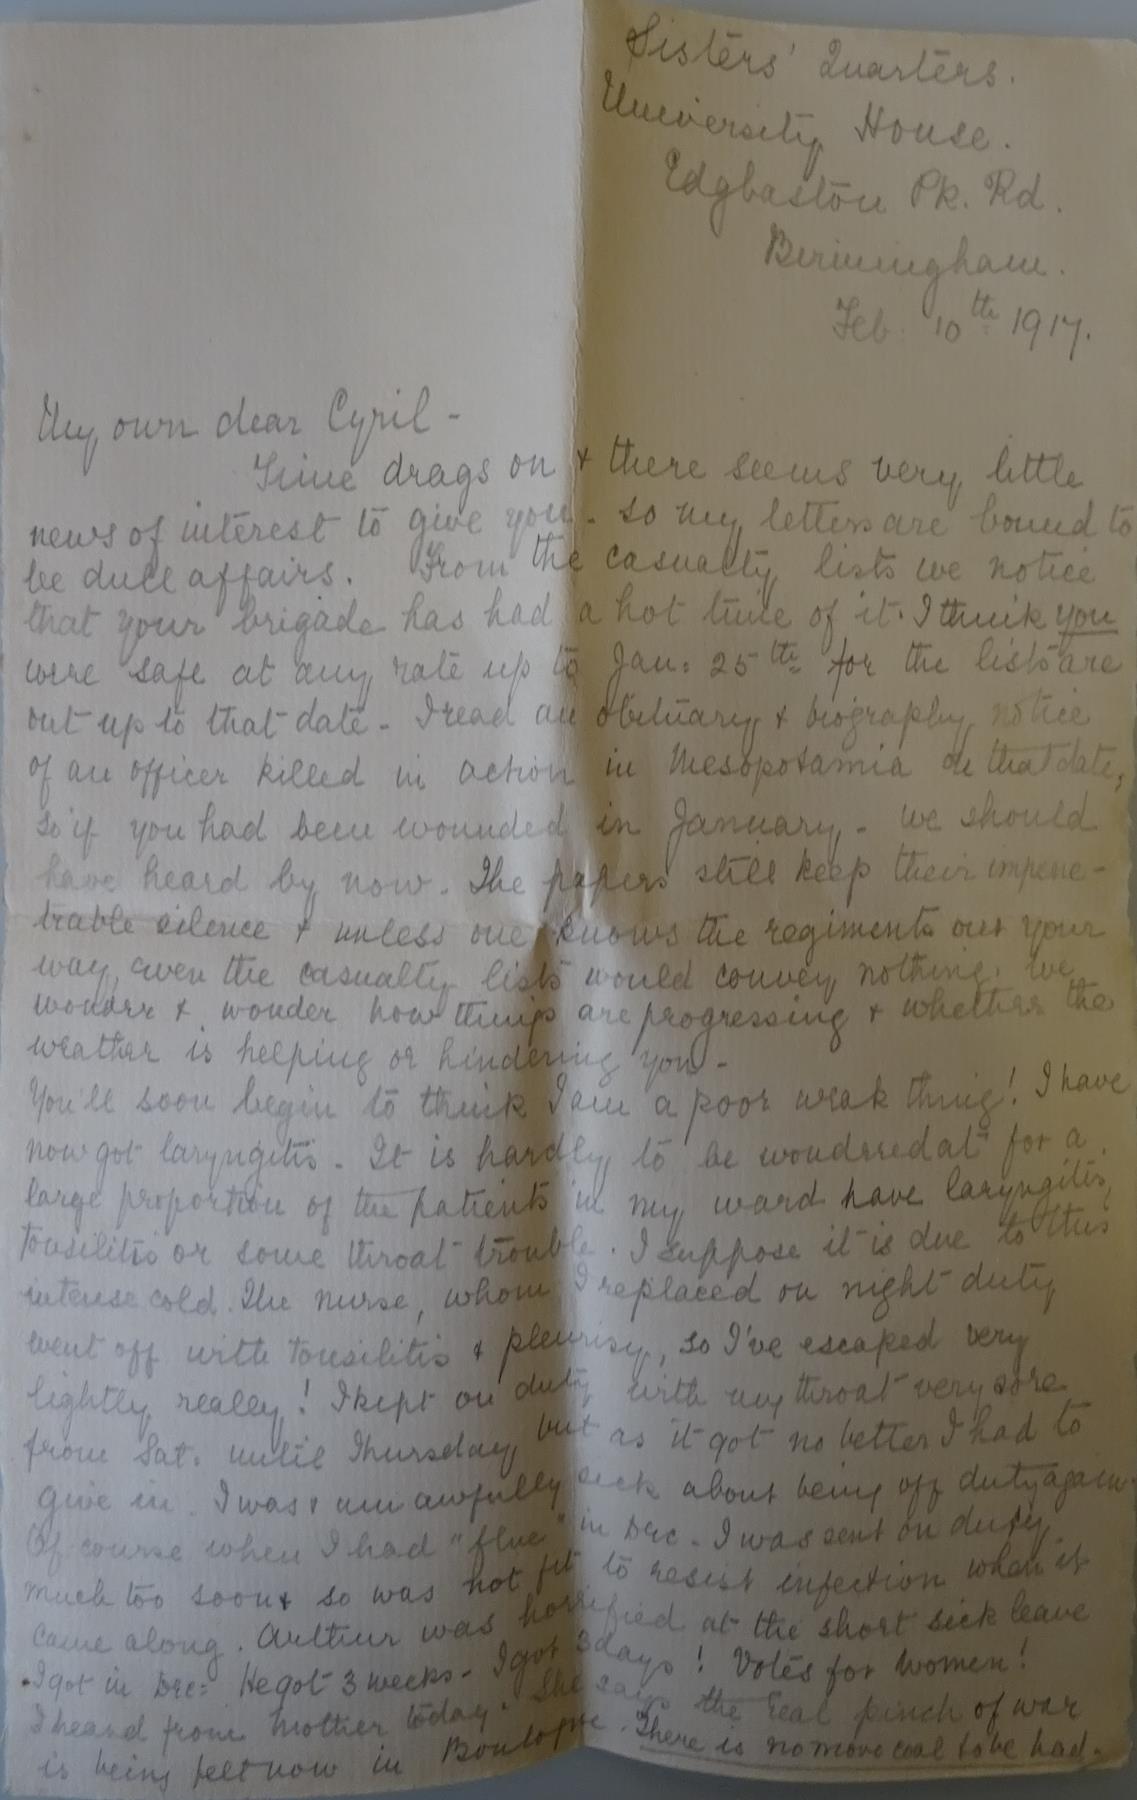 Sisters' Quarters.
University House.
Edgbaston Pk. Rd.
Birmingham.
Feb. 10th 1917.
My own dear Cyril -
Time drags on & there seems very little
news of interest to give you - so my letters are bound to
be dull affairs. From the casualty lists we notice
that your brigade has had a hot time of it. I think you
were safe at any rate up to Jan: 25th for the lists are
out up to that date - I read an obituary & biography notice
of an officer killed in action in Mesopotamia on that date,
so if you had been wounded in January - we should
have heard by now. The papers still keep their impene-
trable silence & unless one knows the regiments out your
way, even the casualty lists would convey nothing. We
wonder & wonder how things are progressing & whether the
weather is helping or hindering you -
You'll soon begin to think I am a poor weak thing! I have
now got laryngitis. It is hardly to be wondered at for a
large proportion of the patients in my ward have laryngitis,
tonsilitis or some throat trouble. I suppose it is due to this
intense cold. The nurse, whom I replaced on night duty
went off with tonsilitis & pleurisy, so I've escaped very
lightly really! I kept on duty with my throat very sore
from Sat. until Thursday but as it got no better I had to
give in. I was & am awfully sick about being off duty again.
Of course when I had "flue" in Dec - I was sent on duty
much too soon & so was not fit to resist infection when it
came along. Arthur was horrified at the short sick leave
I got in Dec: He got 3 weeks - I got 3 days! Votes for Women!
I heard from Mother today. She says the real pinch of war
is being felt now in Boulogne. There is no more coal to be had -